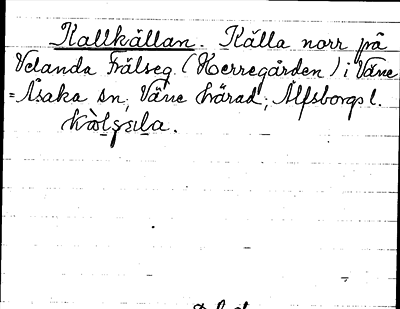 Kallkällan. Källa norr på
Velanda Frälseg. (Herregården) i Väne
=Åsaka sn, Väne härad, Älfsborgs l.